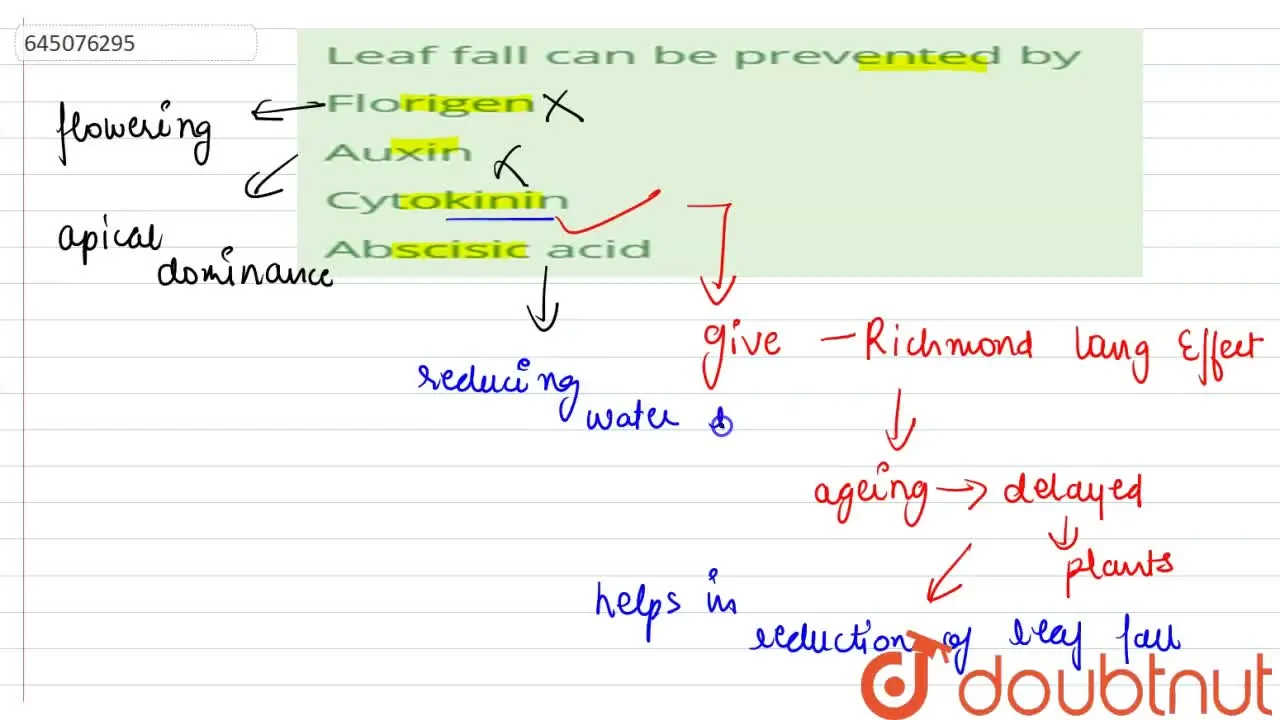 645076295
Leaf fall can be prevented by
Florigen
Auxin
Cytokinin
Abscisic acid
flowering
apical
dominance
give – Richmond Lang Effect
reducing
water
ageing → delayed
plants
helps in
reduction of leaf fall
doubtnut